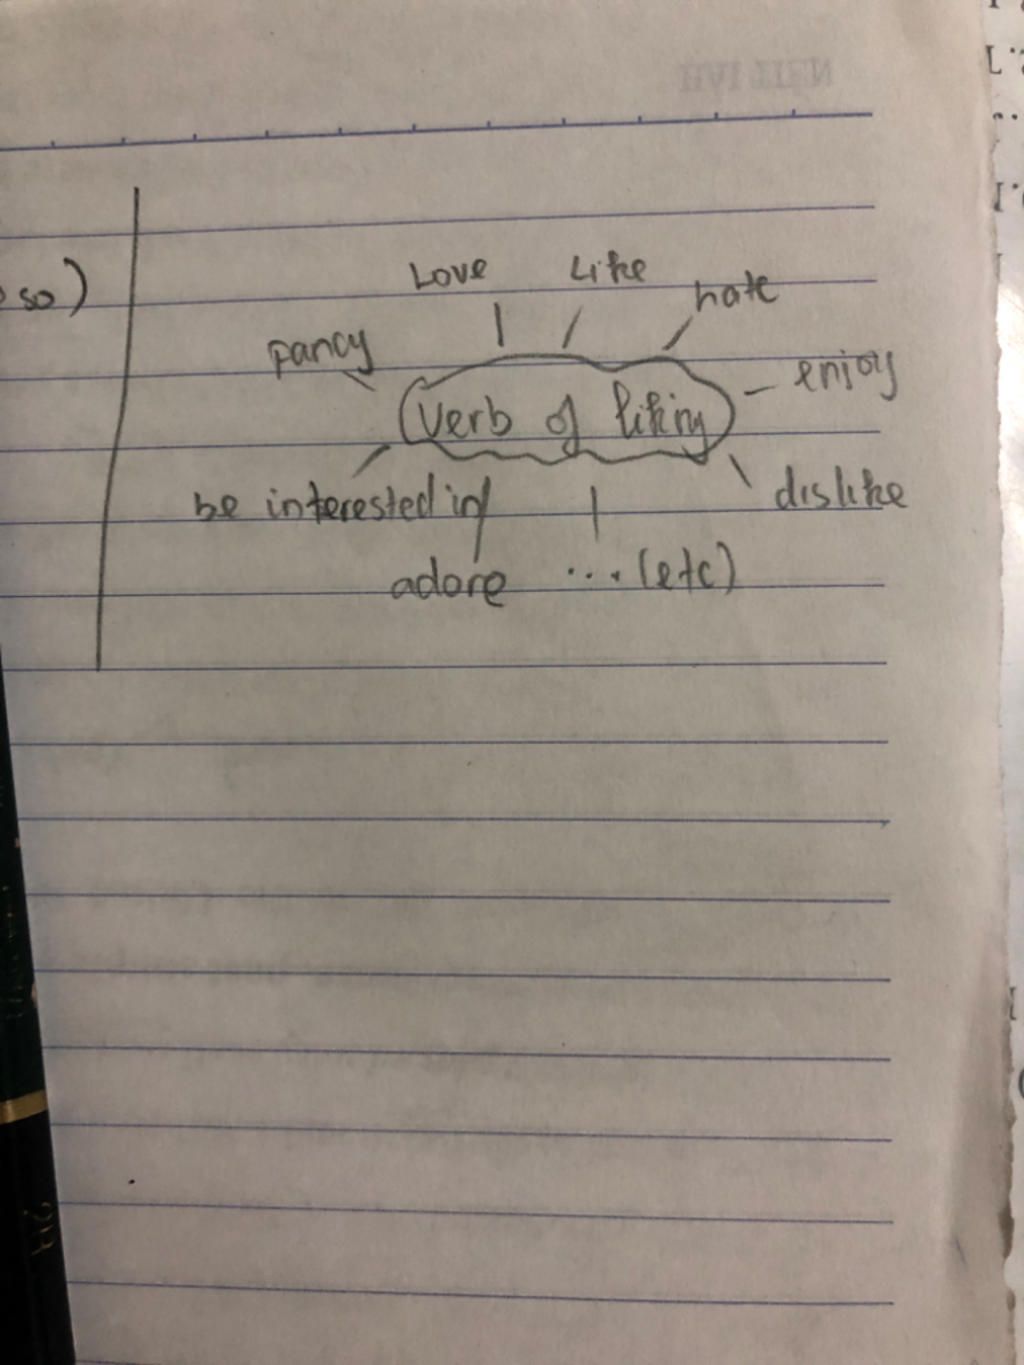 so)
Love
Like
hate
pancy
enjoy
verb of liking
be interested in
dislike
adore
... (etc)
2H